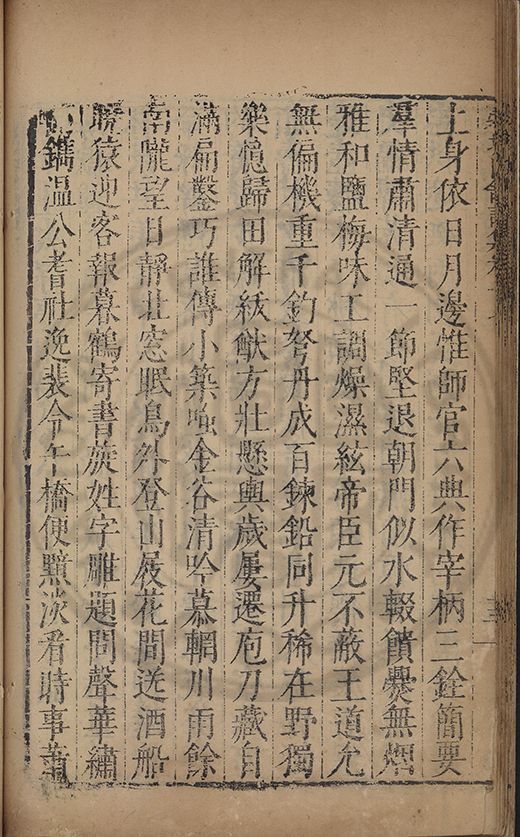 上身依日月邊惟師官六典作宰柄三銓簡要
羣情肅清通一節堅退朝門似水輟饋爨無烟
雅和鹽梅味工調燥濕絃帝臣元不敵王道允
無偏機重千鈞弩丹成百鍊鉛同升稀在野獨
樂憶歸田解紱猷方壯懸輿歲屢遷庖刀藏自
滿扁鑿巧誰傳小築嗤金谷清吟慕輞川雨餘
南隴望日靜北窓眠鳥外登山屐花間送酒船
猿迎客報暮鶴寄書姓字雕題問聲華繡
鐫溫公耆社逸裴令午橋便黯淡看時事蕭